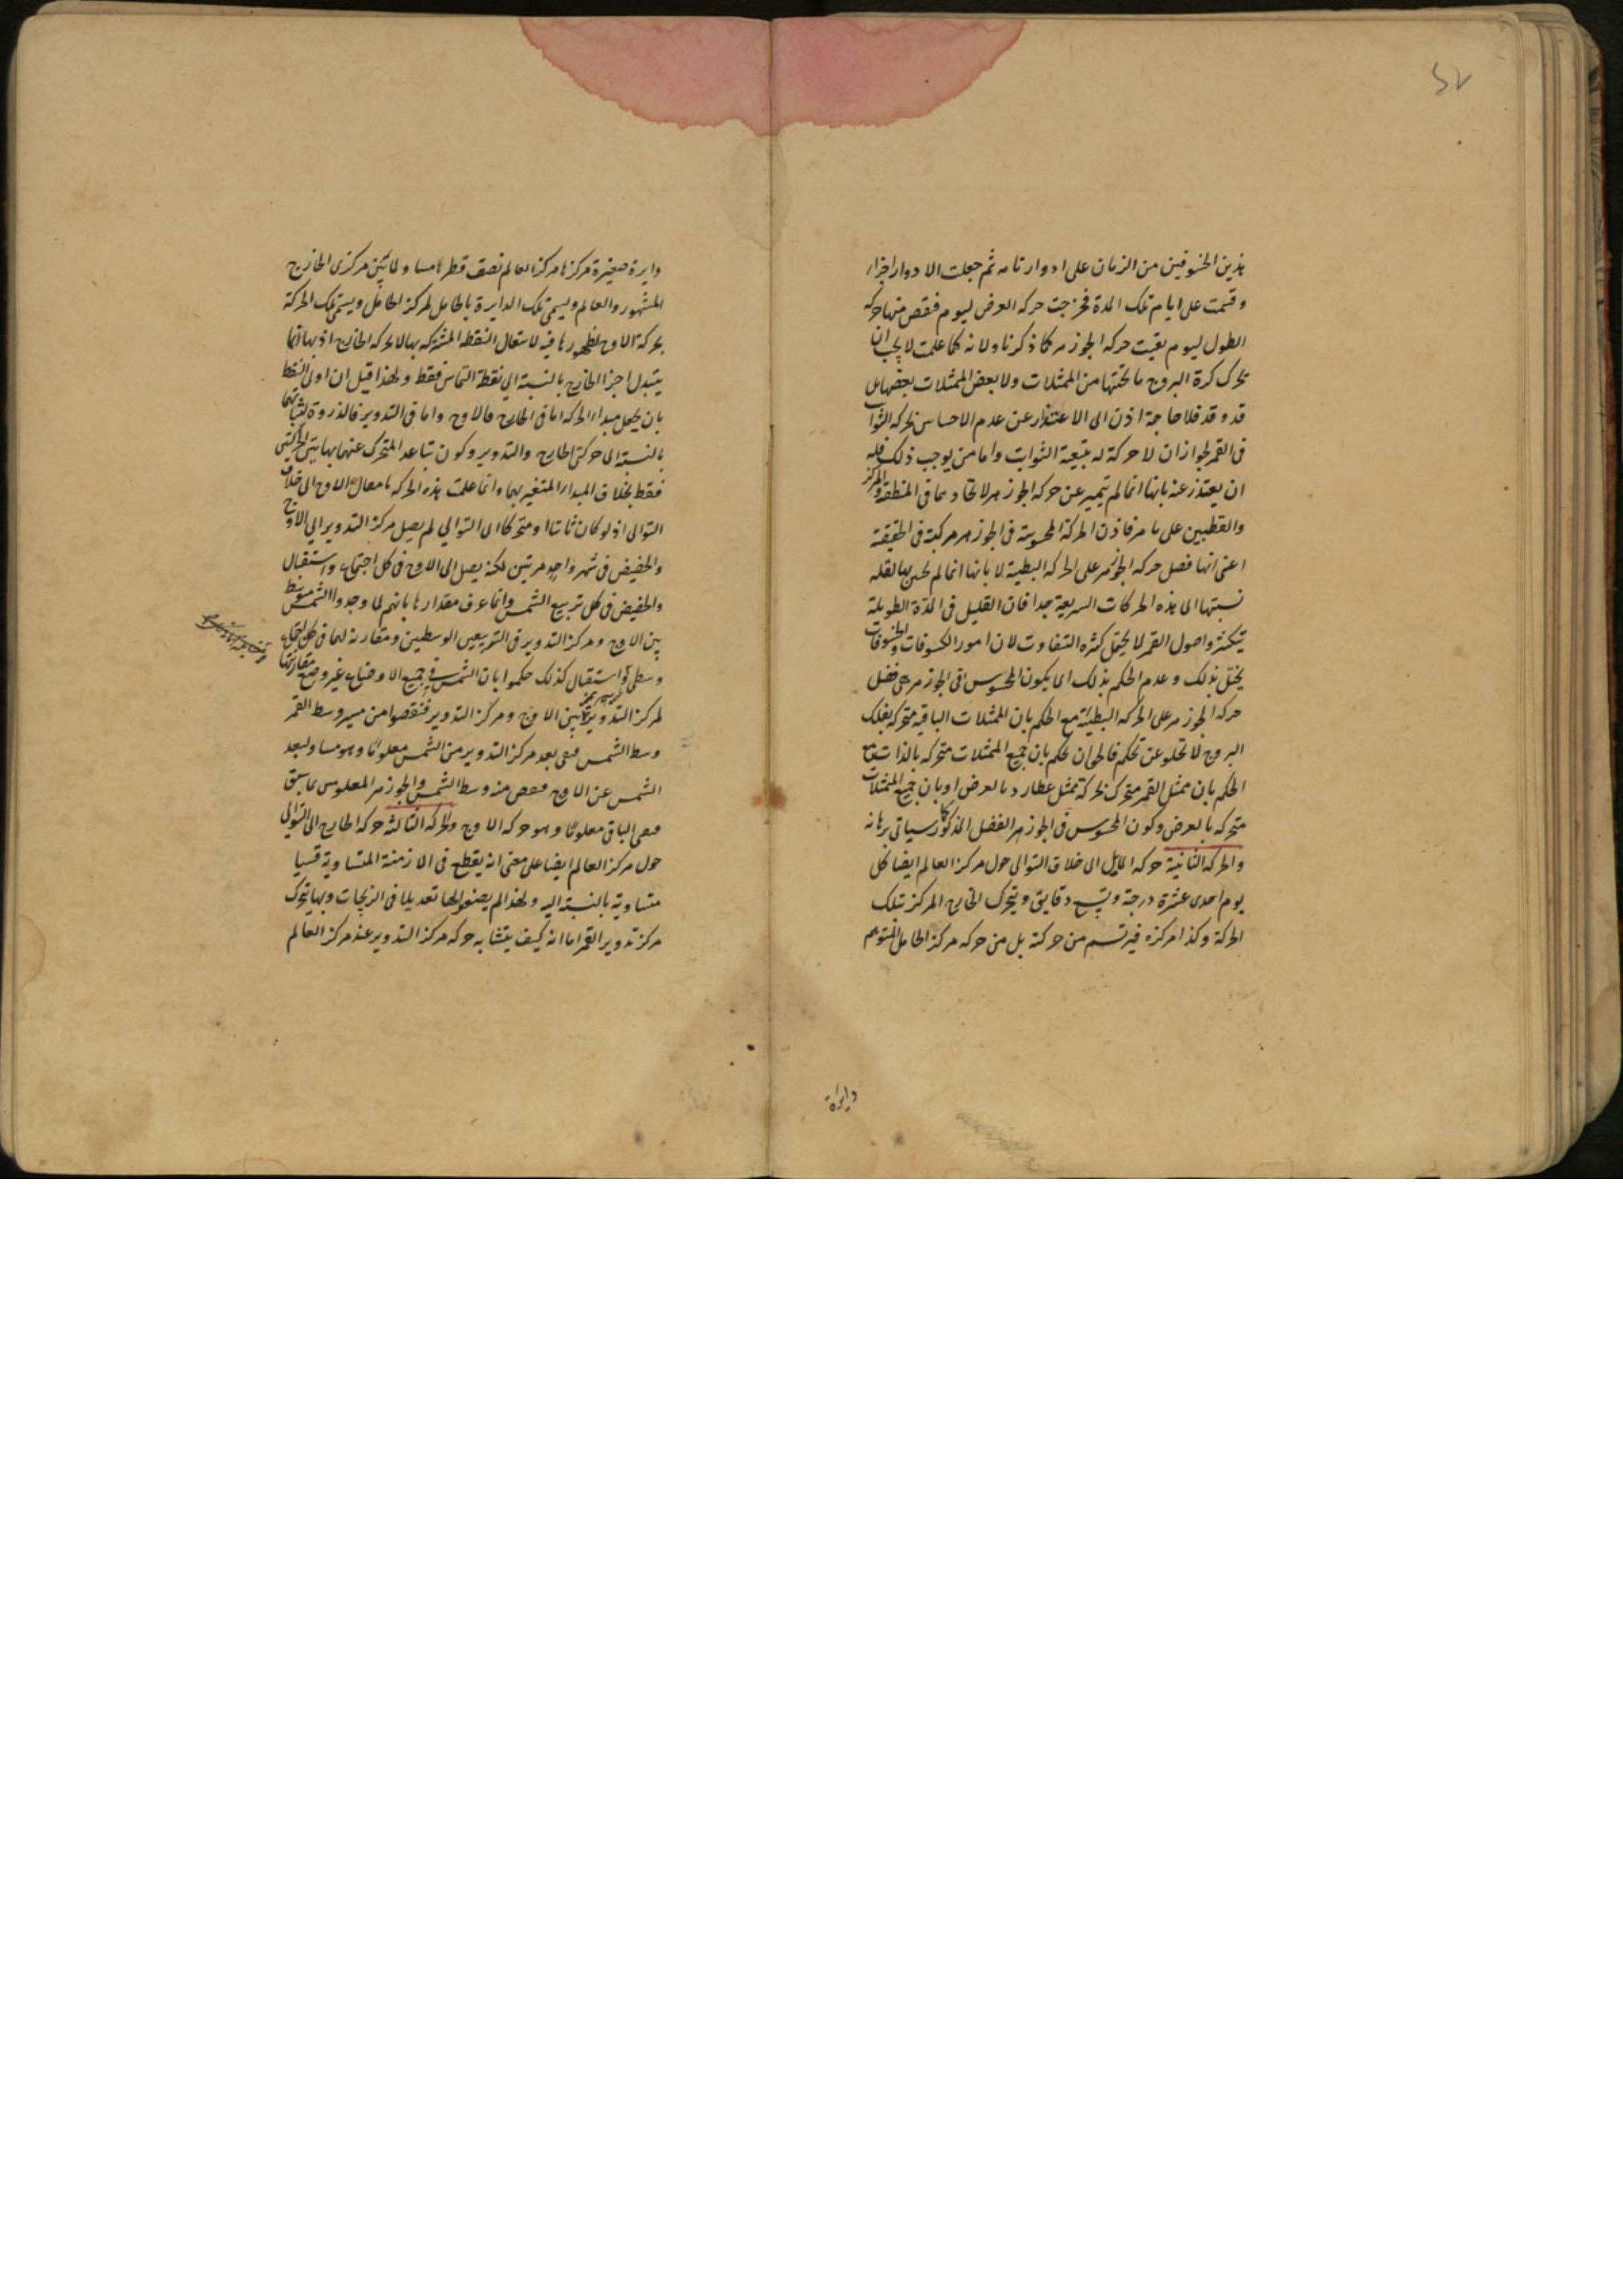 ٥٧
بذين الخسوفين من الزمان على ادوار تامه ثم جعلت الادوار اجزاء
وقسمت على ايام تلك المدة فخرجت حركه العرض ليوم فنقص منها حركه
الطول ليوم بقيت حركه الجوزهر كما ذكرنا ولانه كما علمت لا يجب ان
تحرك كرة البروج ما تحتها من الممثلات ولا بعض الممثلات بعضها بل
قد وقد فلا حاجة اذن الى الاعتذار عن عدم الاحساس بحركه الثوابت
فى القمر لجواز ان لا حركة له بتبعية الثوابت واما من يوجب ذلك فله
ان يعتذر عنه بانها انما لم تتميز عن حركه الجوزهر لاتحادهما فى المنطقة والمركز
والقطبين على ما مر فاذن الحركة المحسوسة فى الجوزهر مركبة فى الحقيقة
اعنى انها فضل حركه الجوزهر على الحركه البطيئة لا بانها انما لم يحس بها لقلة
نسبتها الى هذه الحركات السريعة جدا فان القليل فى المدة الطويلة
يتكثر واصول القمر لا يحتمل كثره التفاوت لان امور الكسوفات والخسوفات
يختل بذلك وعدم الحكم بذلك اى يكون المحسوس فى الجوزهر هى فضل
حركه الجوزهر على الحركه البطيئة مع الحكم بان الممثلات الباقية متحركه بفلك
البروج لا تخلو عن تحكم فالحق ان يحكم بان جميع الممثلات متحركه بالذات مع
الحكم بان ممثل القمر متحرك بحركة ممثل عطارد بالعرض او بان جميع الممثلات
متحركه بالعرض وكون المحسوس فى الجوزهر الفضل المذكور كما سياتى برهانه
والحركه الثانية حركه المايل الى خلاف التوالى حول مركز العالم ايضا كل
يوم احدى عشرة درجة وتسع دقايق ويتحرك الخارج المركز بتلك
الحركة وكذا مركزه فيرتسم من حركته بل من حركه مركز الحامل المتوهم
دايرة
دايرة صغيرة مركزها مركز العالم نصف قطرها مساو لما بين مركزى الخارج
المشهور والعالم ويسمى تلك الدايرة بالحامل لمركز الحامل ويسمى تلك الحركة
بحركة الاوج لظهورها فيه لانتقال النقطه المشتركه بها لا بحركه الخارج اذ بها انما
يتبدل اجزا الخارج بالنسبة الى نقطة التماس فقط ولهذا قيل ان اولى النقط
بان يجعل مبدا الحركه اما فى الخارج فالاوج واما فى التدوير فالذروة لثباتهما
بالنسبة الى حركتى الخارج والتدوير وكون تباعد المتحرك عنهما بهاتين الحركتين
فقط بخلاف المبدا المتغير بهما وانما علمت هذه الحركه بانتقال الاوج الى خلاف
التوالى اذ لو كان ثابتا او متحركا الى التوالي لم يصل مركز التدوير الى الاوج
والحضيض فى شهر واحد مرتين لكنه يصل الى الاوج فى كل اجتماع واستقبال
والحضيض فى كل تربيع الشمس وانما عرف مقدارها بانهم لما وجدوا الشمس متوسط
بين الاوج ومركز التدوير فى التربيعين الوسطيين ومقارنة لهما فى كل اجتماع
وسطى او استقبال كذلك حكموا بان الشمس فى جميع الاوضاع غير وضع مقارنتها
لمركز التدوير بين الاوج ومركز التدوير فنقصوا من مسير وسط القمر
وسط الشمس فبقى بعد مركز التدوير من الشمس معلومًا وهو مساو لبعد
الشمس عن الاوج فنقص منه وسط الشمس والجوزهر المعلومين بما سبق
فبقى الباقى معلومًا وهو حركه الاوج والحركه الثالثة حركه الخارج الى التوالى
حول مركز العالم ايضا على معنى انه يقطع فى الازمنة المتساوية قسيا
متساوية بالنسبة اليه ولهذا لم يضعوا لها تعديلا فى الزيجات وبها يتحرك
مركز تدوير القمر اما انه كيف يتشابه حركه مركز التدوير عند مركز العالم